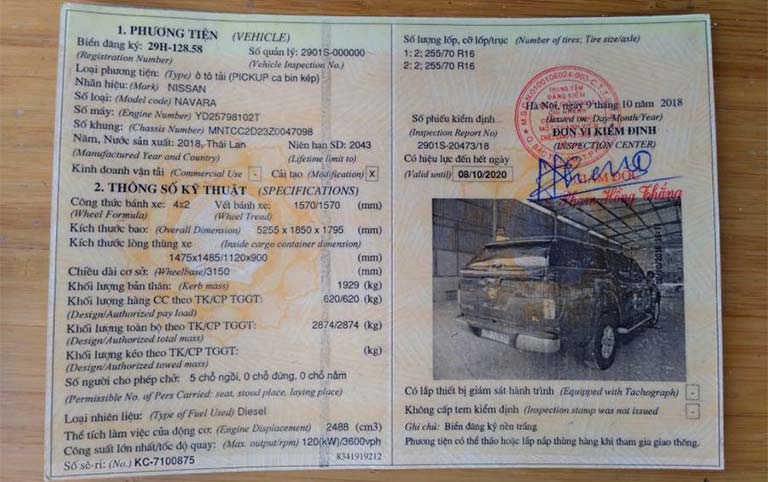 1. PHƯƠNG TIỆN (VEHICLE)
Biển đăng ký: 29H-128.58 Số quản lý: 2901S-000000
(Registration Number) (Vehicle Inspection No.)
Loại phương tiện: (Type) ô tô tải (PICKUP ca bin kép)
Nhãn hiệu: (Mark) NISSAN
Số loại: (Model code) NAVARA
Số máy: (Engine Number) YD25798102T
Số khung: (Chassis Number) MNTCC2D23Z0047098
Năm, Nước sản xuất: 2018, Thái Lan Niên hạn SD: 2043
(Manufactured Year and Country) (Lifetime limit to)
Kinh doanh vận tải (Commercial Use) - Cải tạo (Modification) X
2. THÔNG SỐ KỸ THUẬT (SPECIFICATIONS)
Công thức bánh xe: 4x2 Vết bánh xe: 1570/1570 (mm)
(Wheel Formula) (Wheel Tread)
Kích thước bao: (Overall Dimension) 5255 x 1850 x 1795 (mm)
Kích thước lòng thùng xe (Inside cargo container dimension)
1475x1485/1120x900 (mm)
Chiều dài cơ sở: (Wheelbase) 3150 (mm)
Khối lượng bản thân: (Kerb mass) 1929 (kg)
Khối lượng hàng CC theo TK/CP TGGT: 620/620 (kg)
(Design/Authorized pay load)
Khối lượng toàn bộ theo TK/CP TGGT: 2874/2874 (kg)
(Design/Authorized total mass)
Khối lượng kéo theo TK/CP TGGT: (kg)
(Design/Authorized towed mass)
Số người cho phép chở: 5 chỗ ngồi, 0 chỗ đứng, 0 chỗ nằm
(Permissible No. of Pers Carried: seat, stood place, laying place)
Loại nhiên liệu: (Type of Fuel Used) Diesel
Thể tích làm việc của động cơ: (Engine Displacement) 2488 (cm3)
Công suất lớn nhất/tốc độ quay: (Max. output/rpm) 120(kW)/3600vph
Số sê-ri: (No.) KC-7100875 8341919212
Số lượng lốp, cỡ lốp/trục (Number of tires; Tire size/axle)
1: 2; 255/70 R16
2: 2; 255/70 R16
Hà Nội, ngày 9 tháng 10 năm 2018
Số phiếu kiểm định (Issued on: Day/Month/Year)
(Inspection Report No) ĐƠN VỊ KIỂM ĐỊNH
2901S-20473/18 (INSPECTION CENTER)
Có hiệu lực đến hết ngày
(Valid until) 08/10/2020
TRUNG TÂM
ĐĂNG KIỂM
GIÁM ĐỐC
Có lắp thiết bị giám sát hành trình (Equipped with Tachograph) -
Không cấp tem kiểm định (Inspection stamp was not issued -
Ghi chú: Biển đăng ký nền trắng
Phương tiện có thể tháo hoặc lắp nắp thùng hàng khi tham gia giao thông.